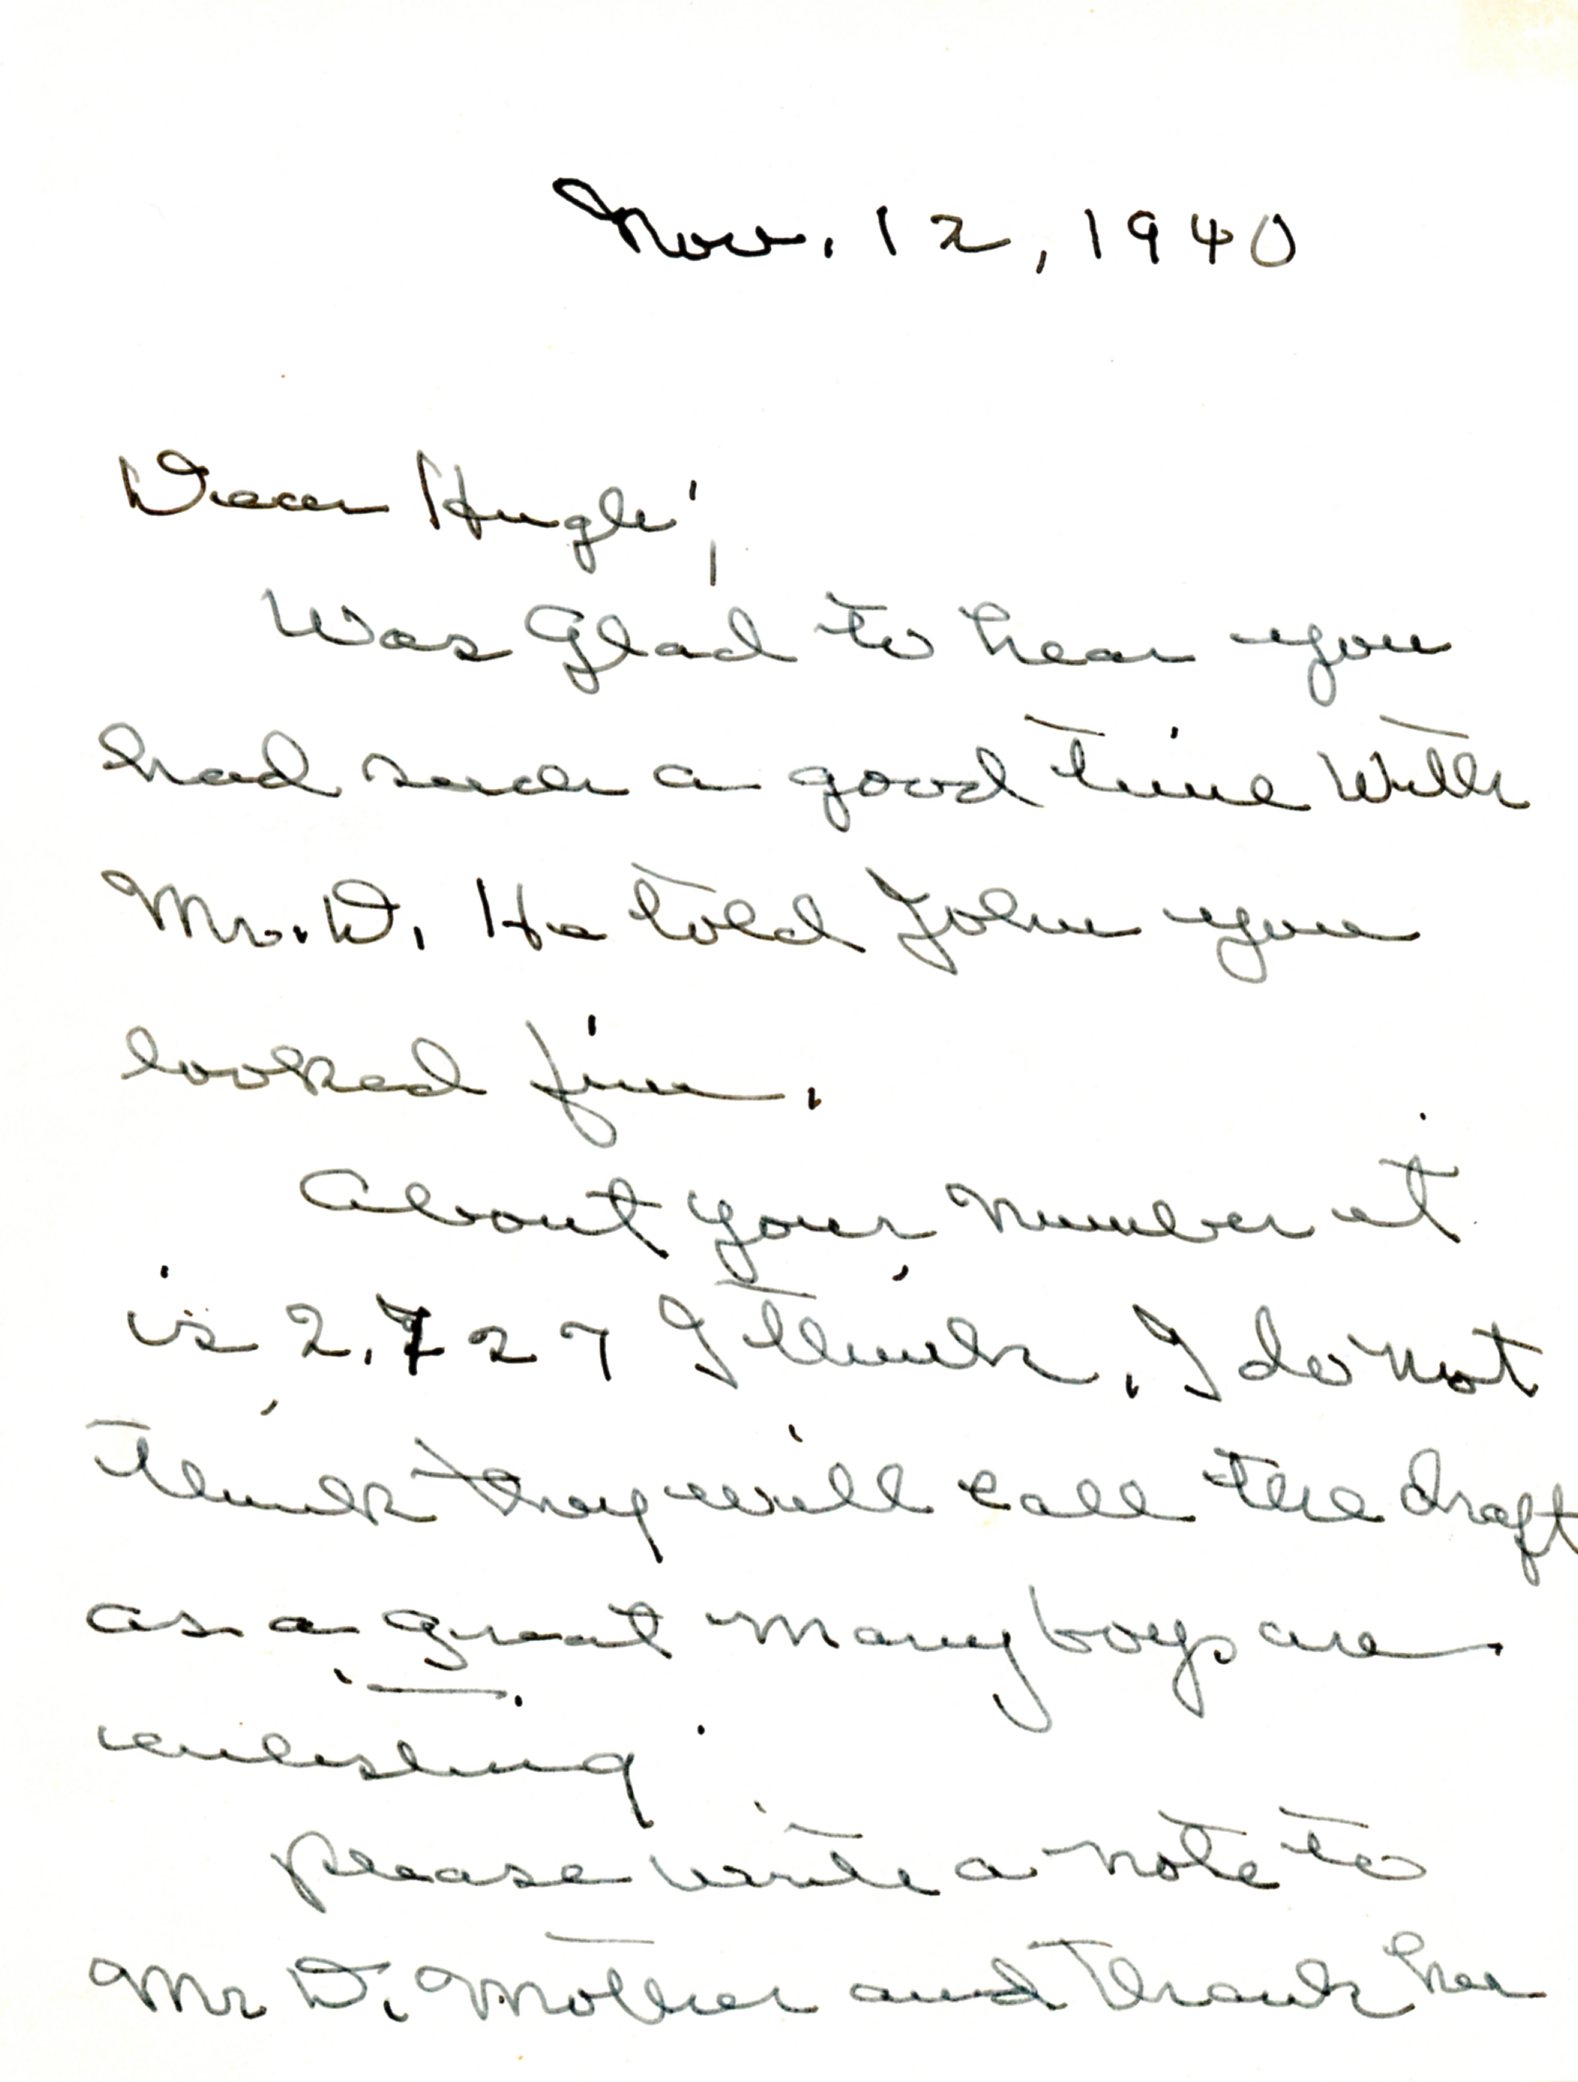 Nov. 12, 1940
Dear Hugh,
Was Glad to hear you
had such a good time With
Mr. D. He told John you
looked fine.
About your number it
is 2.727 I think. I do not
think they will call the draft
as a great many boys are
enlisting
please write a note to
Mr D. Mother and thank her